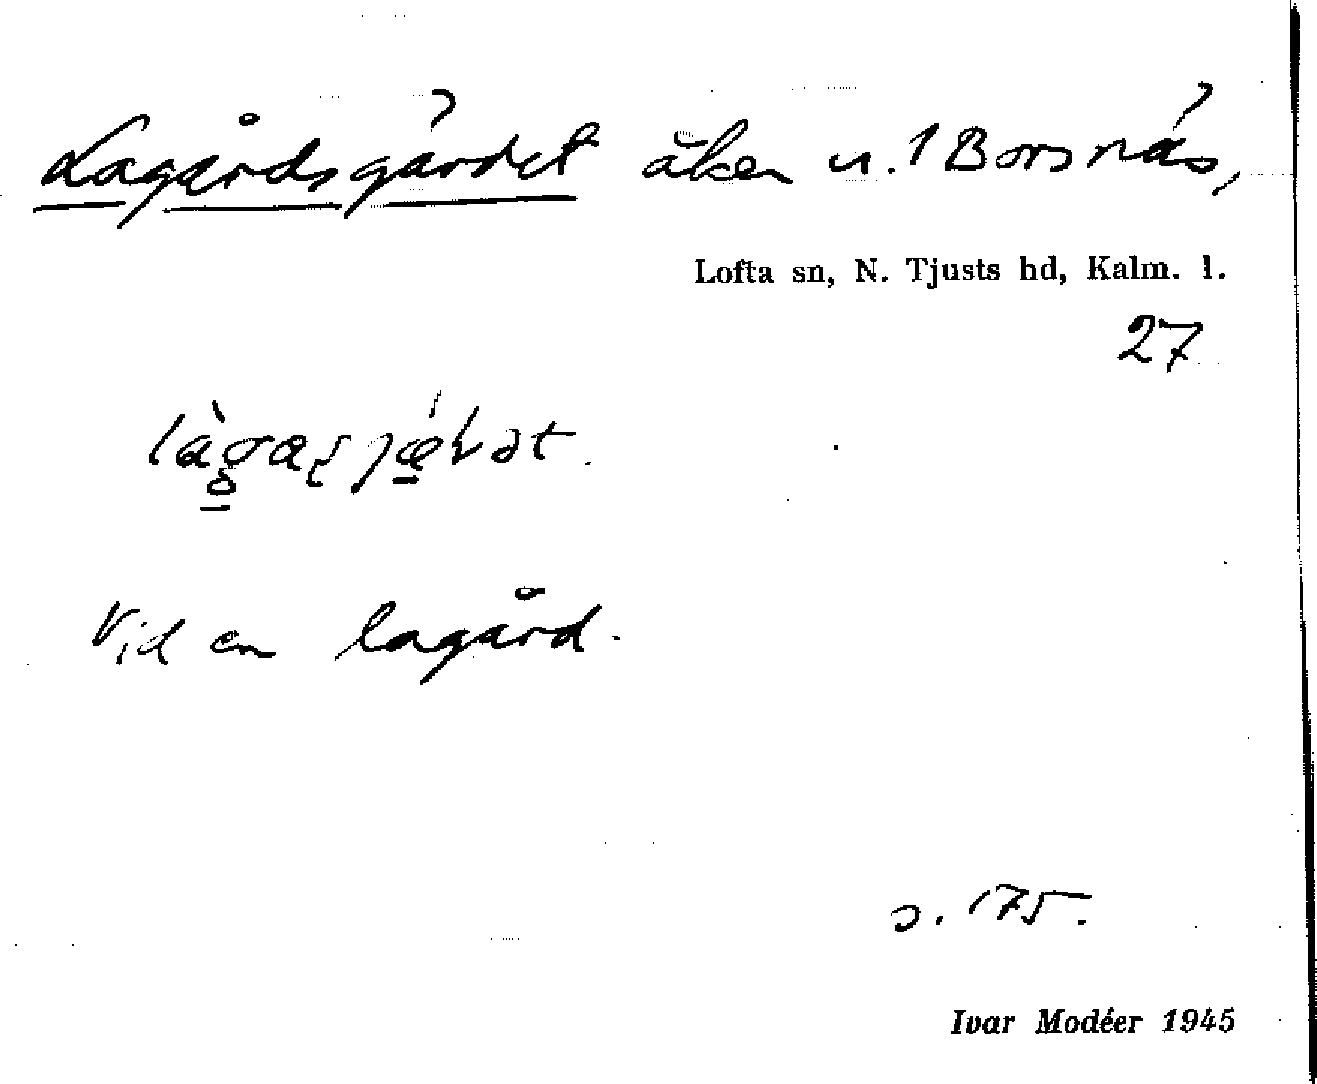 Lagårdsgärdet åker u. 1 Borsnäs,
Lofta sn, N. Tjusts hd, Kalm. l.
27
Vid en lagård.
s. 175.
Ivar Modéer 1945